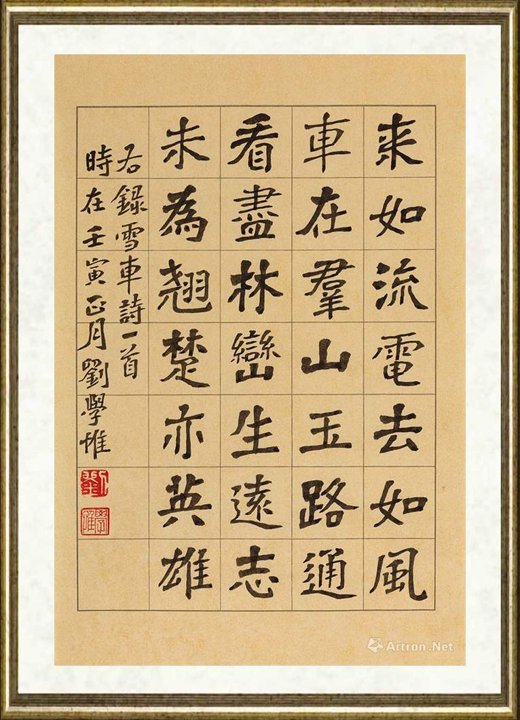 來如流電去如風
車在羣山玉路通
看盡林巒生遠志
未為翹楚亦英雄
右録雪車詩一首
時在壬寅正月劉學惟
劉
學惟
Artron.Net